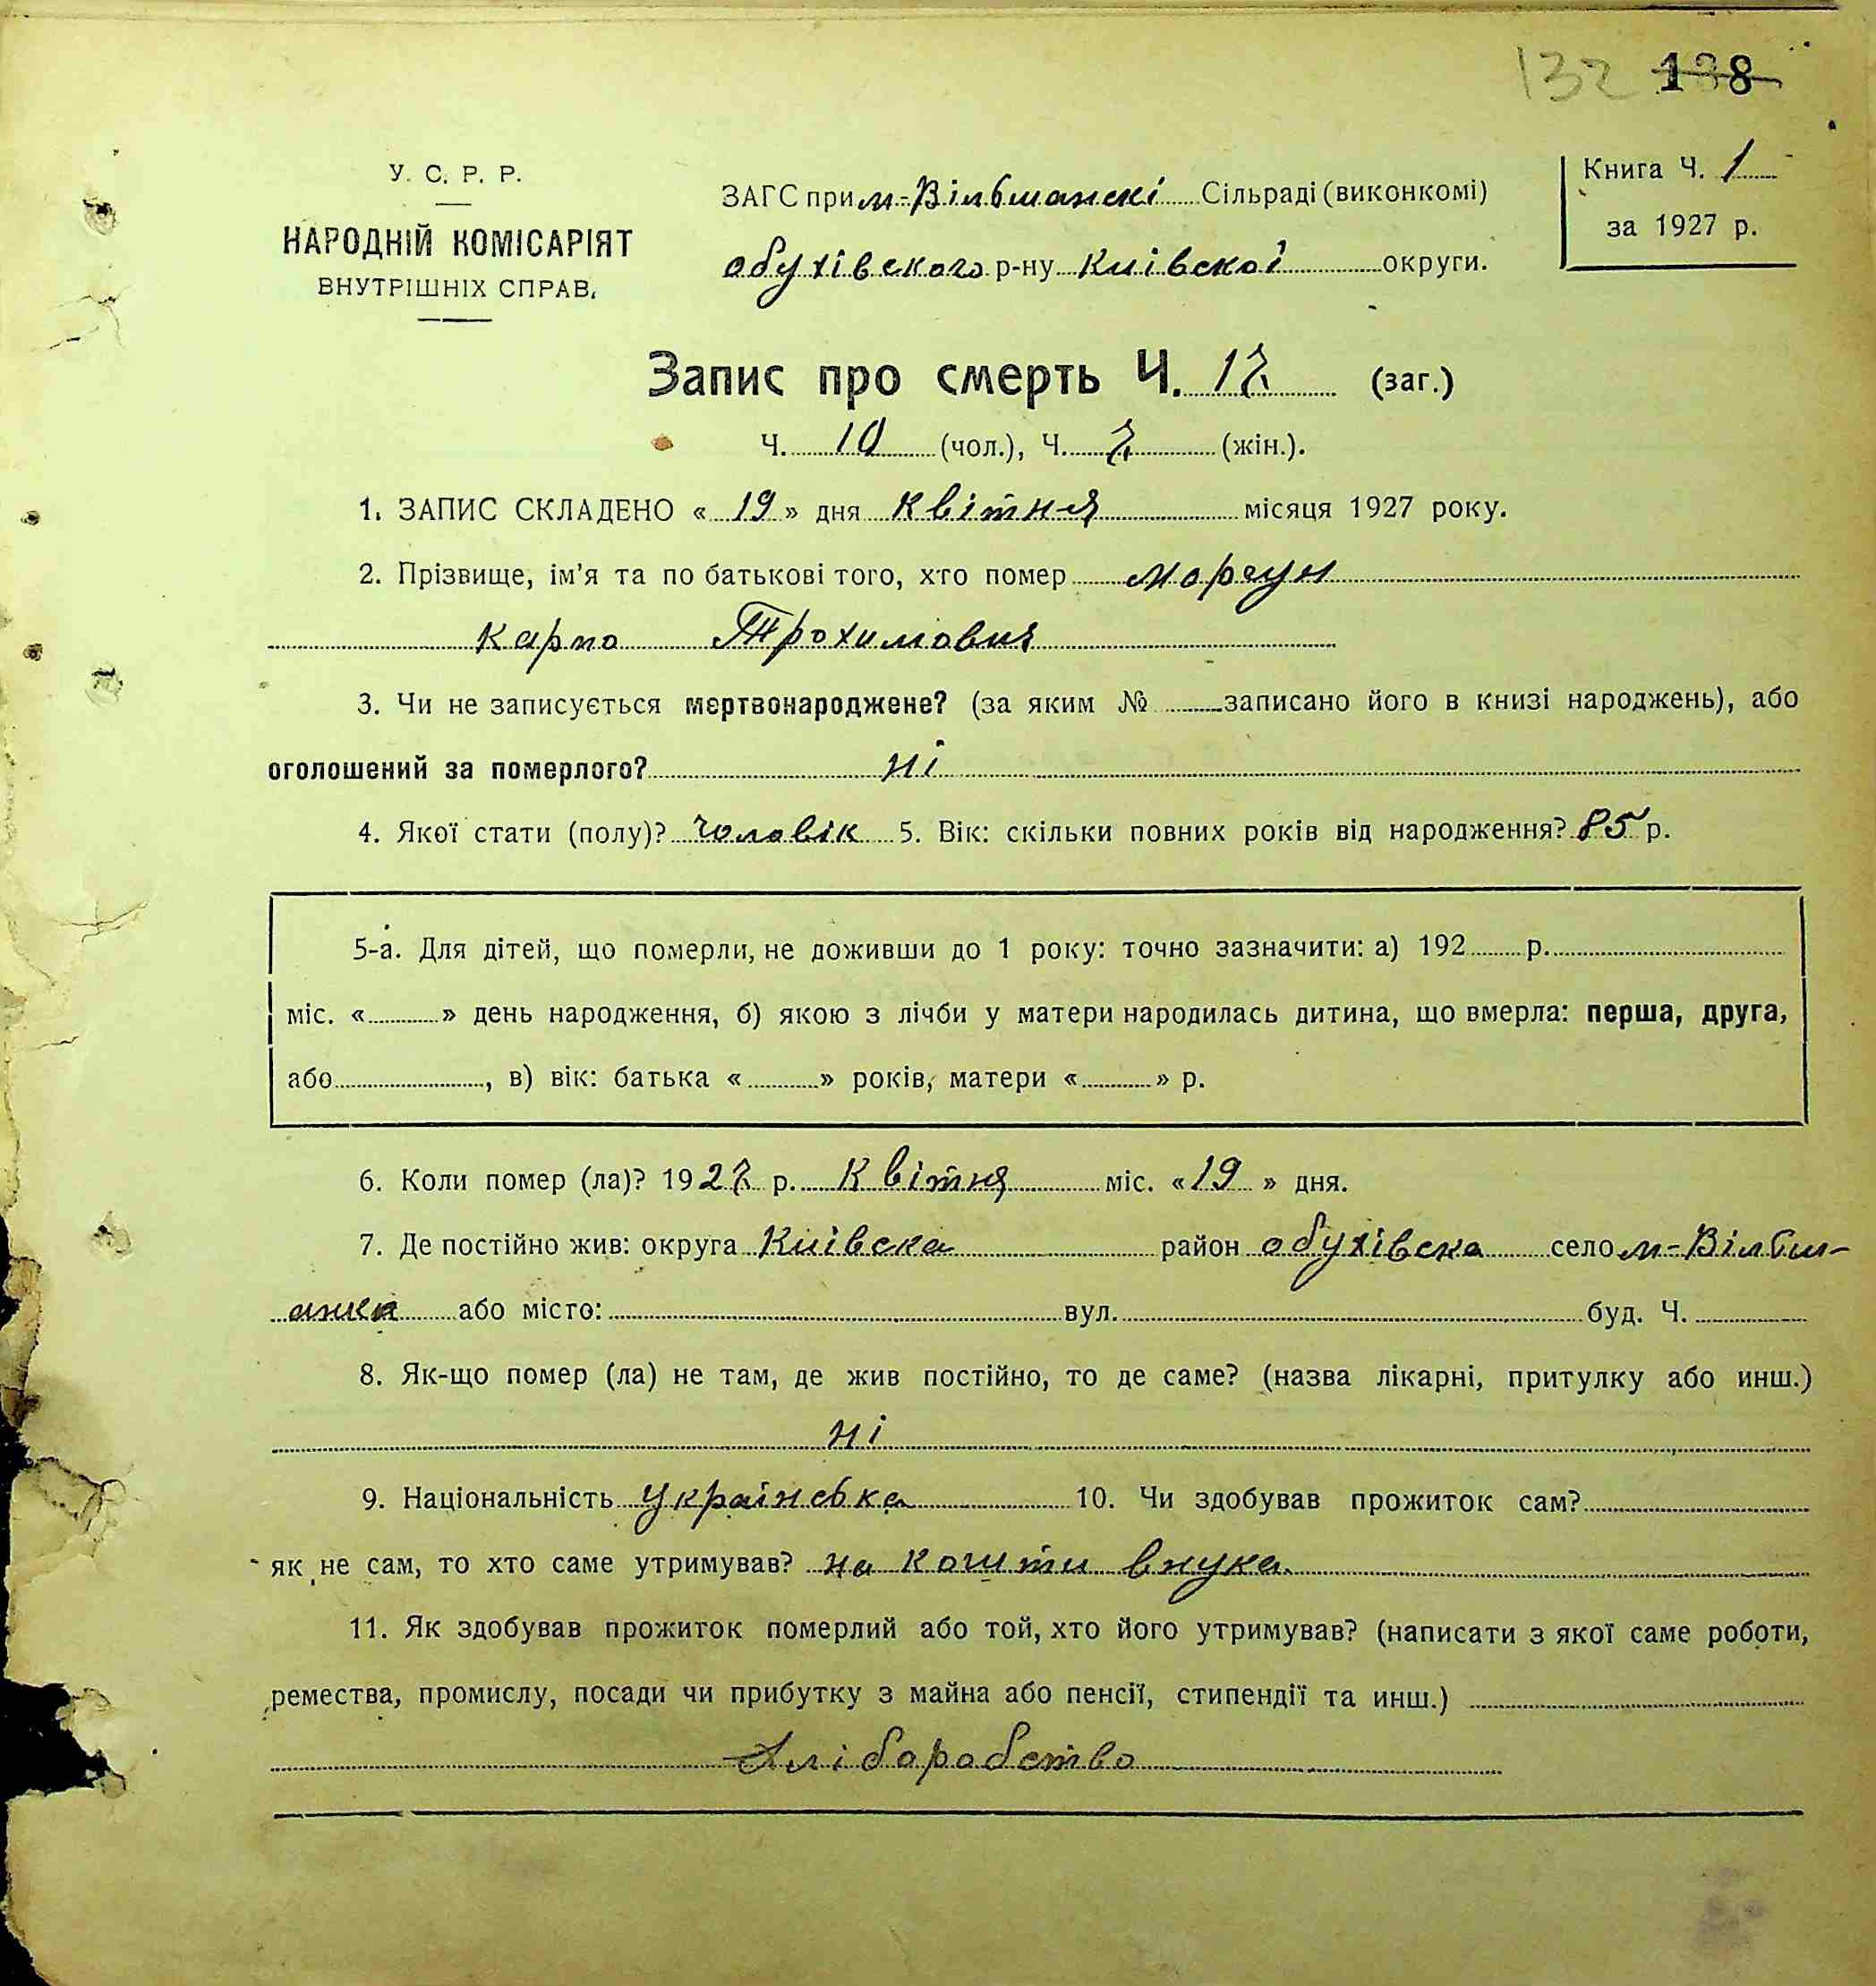 132 138
У. С. Р. Р.
НАРОДНІЙ КОМІСАРІЯТ
ВНУТРІШНІХ СПРАВ.
ЗАГС при м-Вільшанскі Сільраді (виконкомі)
обухівского р-ну Київскої округи.
Книга Ч. 1
за 1927 р.
Запис про смерть Ч. 17 (заг.)
Ч. 10 (чол.), Ч. 7 (жін.).
1. ЗАПИС СКЛАДЕНО « 19 » дня Квітня місяця 1927 року.
2. Прізвище, ім'я та по батькові того, хто помер моргун
Карпо Трохимович
3. Чи не записується мертвонароджене? (за яким № записано його в книзі народжень), або
оголошений за померлого? ні
4. Якої стати (полу)? Чоловік 5. Вік: скільки повних років від народження? 85 р.
5-а. Для дітей, що померли, не доживши до 1 року: точно зазначити: а) 192 р.
міс. « » день народження, б) якою з лічби у матери народилась дитина, що вмерла: перша, друга,
або , в) вік: батька « » років, матери « » р.
6. Коли помер (ла)? 1927 р. Квітня міс. «19 » дня.
7. Де постійно жив: округа Київска район обухівска село м-Вільш-
анка або місто: вул. буд. Ч.
8. Як-що помер (ла) не там, де жив постійно, то де саме? (назва лікарні, притулку або инш.)
ні
9. Національність Українська 10. Чи здобував прожиток сам?
як не сам, то хто саме утримував? на кошти внука.
11. Як здобував прожиток померлий або той, хто його утримував? (написати з якої саме роботи,
ремества, промислу, посади чи прибутку з майна або пенсії, стипендії та инш.)
Хліборобство